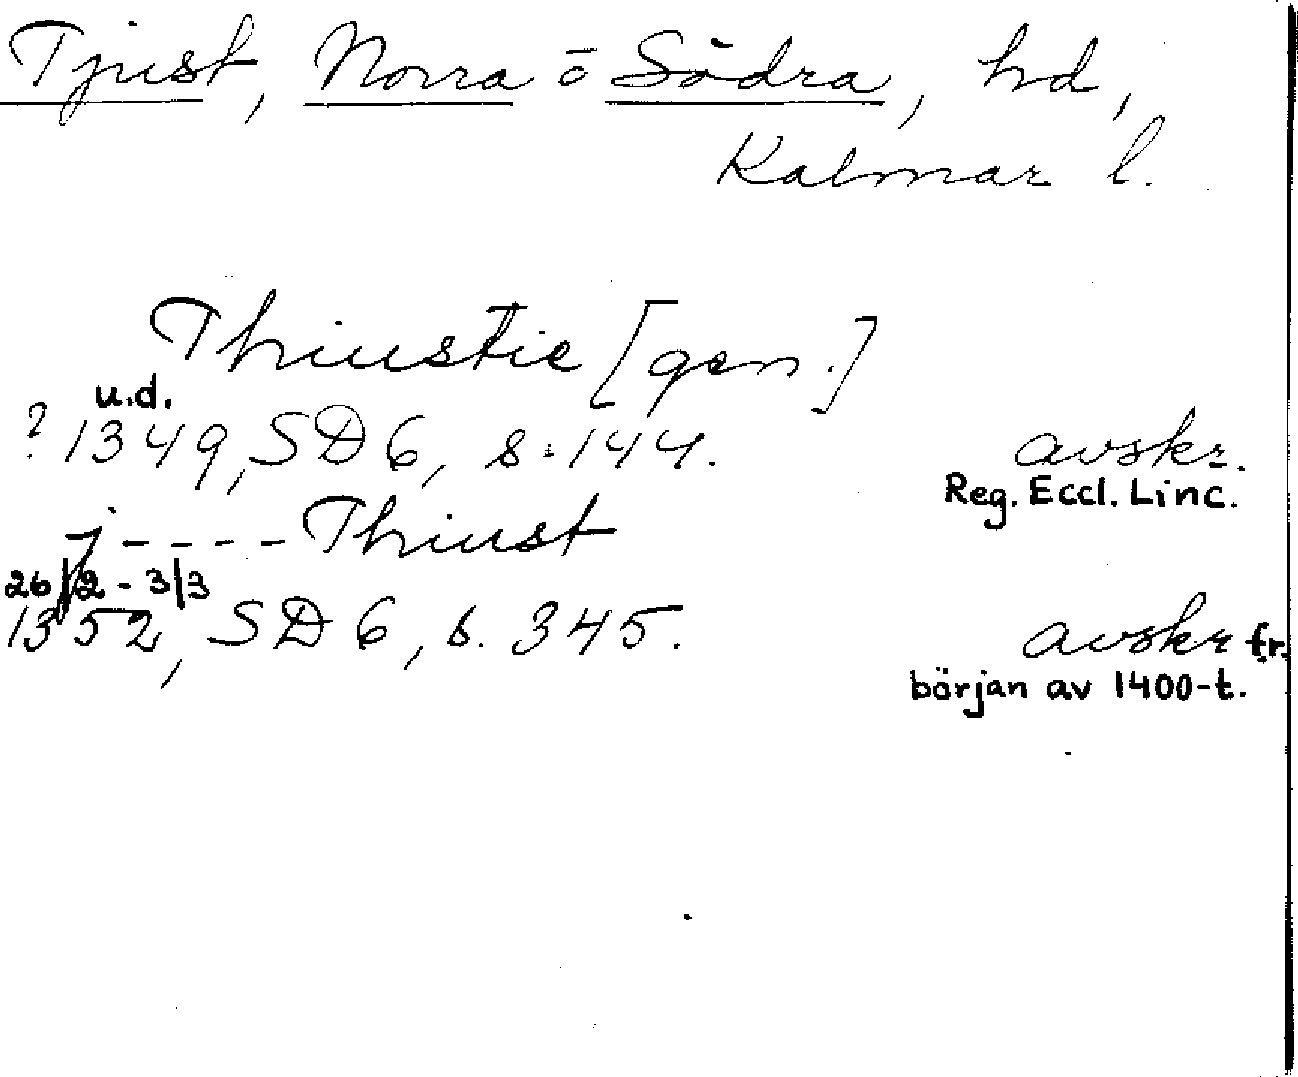 Tjust, Norra o Södra, hd,
Kalmar l.
Thiustie [gen.]
u.d.
? 1349, SD 6, s. 144. avskr.
Reg. Eccl. Linc.
j - - - - Thiust
26/2 - 3/3
1352, SD 6, s. 345. avskr fr.
början av 1400-t.